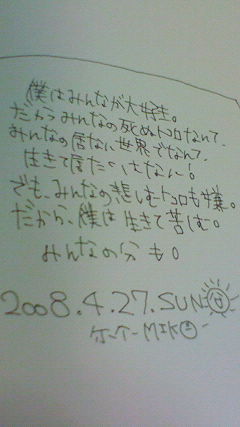 僕はみんなが大好生。
だからみんなの死ぬトコロなんて、
みんなの居ない世界でなんて、
生きて居たくはない!
でも、みんなの悲しむトコロも嫌。
だから、僕は生きて苦しむ。
みんなの分も。
2008.4.27.SUN
ケーケーMIKO